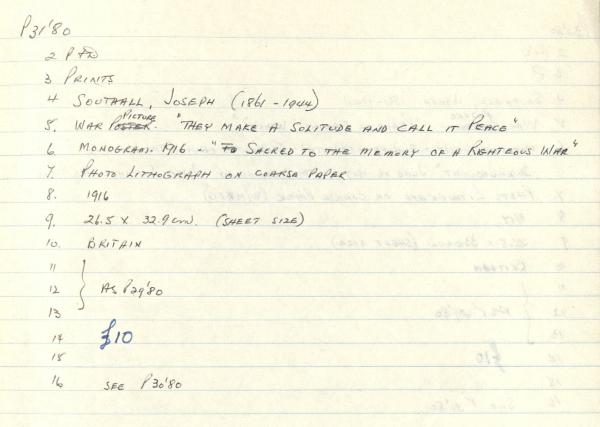 P31'80
2 P
3 PRINTS
4 SOUTHALL, JOSEPH (1861-1944)
5. WAR POSTER. PICTURE "THEY MAKE A SOLITUDE AND CALL IT PEACE"
6 MONOGRAM. 1916 - "To SACRED TO THE MEMORY OF A RIGHTEOUS WAR"
7. PHOTO LITHOGRAPH ON COARSE PAPER
8. 1916
9. 26.5 X 32.9 cm. (SHEET SIZE)
10. BRITAIN
11
12 AS P29'80
13
14 £10
15
16 SEE P30'80